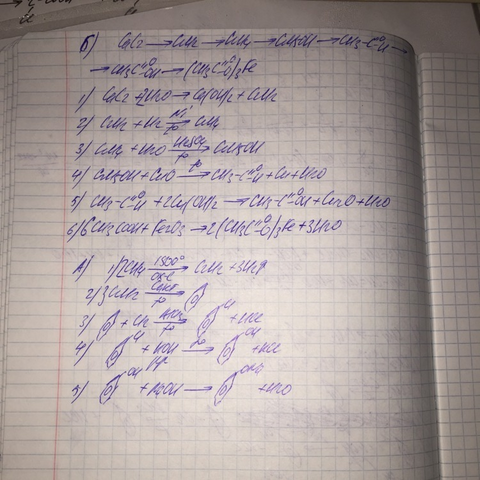 б) CaC2 → C2H2 → C2H4 → C2H5OH → CH3-C=O-H →
→ CH3C=O-OH → (CH3C=O-O)3Fe
1) CaC2 + 2H2O → Ca(OH)2 + C2H2
2) C2H2 + H2 →Ni t° C2H4
3) C2H4 + H2O →H2SO4 t° C2H5OH
4) C2H5OH + CuO →t° CH3-C=O-H + Cu + H2O
5) CH3-C=O-H + 2Cu(OH)2 → CH3-C=O-OH + Cu2O + H2O
6) 6CH3COOH + Fe2O3 → 2(CH3C=O-O)3Fe + 3H2O
А) 1) 2CH4 →1500° C2H2 + 3H2↑
2) 3C2H2 →Cакт t°
3) + Cl2 →AlCl3 t° Cl + HCl
4) Cl + HOH →t° OH + HCl
5) OH + NaOH → ONa + H2O